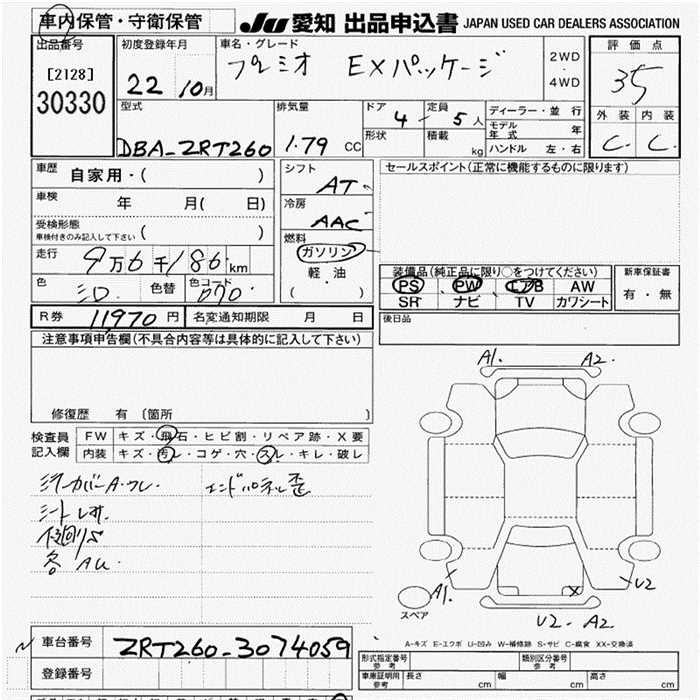 車内保管・守衛保管
JU 愛知 出品申込書 JAPAN USED CAR DEALERS ASSOCIATION
出品番号
[2128]
30330
初度登録年月
22 10月
車名・グレード
プレミオ EXパッケージ
2WD
・
4WD
評価点
35
外装 内装
C C
型式
DBA-ZRT260
排気量
1.79 CC
ドア
4
定員
5 人
形状
積載
kg
ディーラー・並行
モデル年式 年
ハンドル 左・右
車歴
自家用・( )
車検
年 月( 日)
受検形態
車検付きのみ記入して下さい ( )
走行
9万6千186 km
色
シロ
色替
色コード
070
シフト
AT
冷房
AAC
燃料
ガソリン
軽・油
( )
セールスポイント(正常に機能するものに限ります)
装備品(純正品に限り○をつけてください)
PS PW エアB AW
SR ナビ TV カワシート
新車保証書
有・無
R券 11970 円
名変通知期限 月 日
後日品
注意事項申告欄(不具合内容等は具体的に記入して下さい)
修復歴 有 〔箇所 〕
検査員記入欄
FW キズ・飛石・ヒビ割・リペア跡・X要
内装 キズ・汚レ・コゲ・穴・スレ・キレ・破レ
ミラーカバーA・ワレ エンドパネル歪
シート
各 AU
A1. A2.
A1. U2
U2 - A2
スペア
A-キズ E-エクボ U-凹み W-補修跡 S-サビ C-腐食 XX-交換済
車台番号
ZRT260-3074059
登録番号
形式指定番号 参考
類別区分番号 参考
車庫証明用 参考
長さ cm 幅 cm 高さ cm